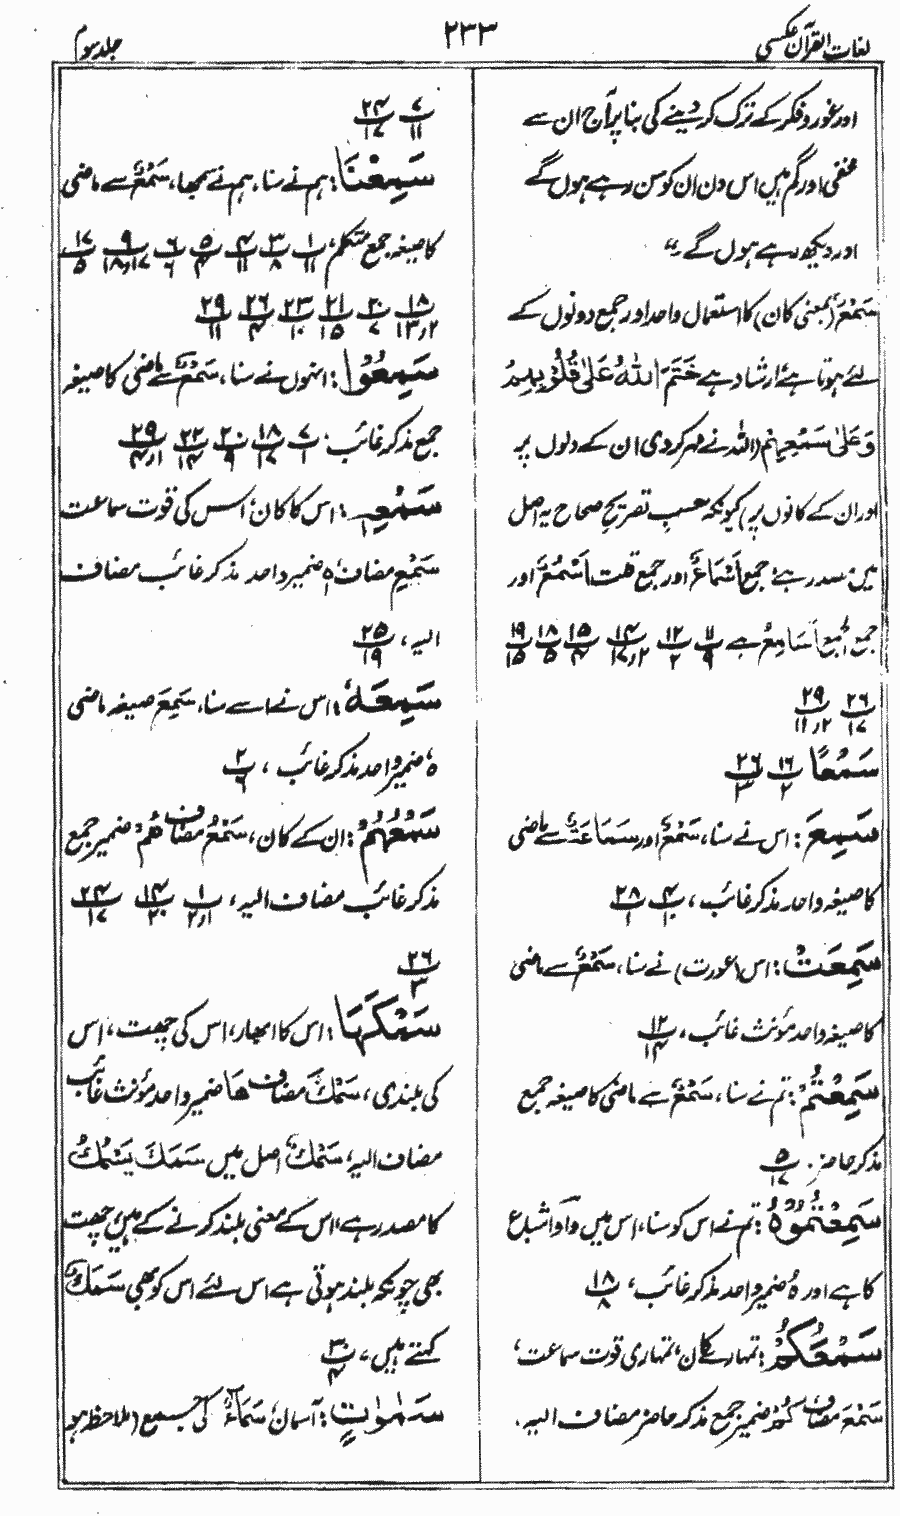 لغات القرآن عکسی
۲۳۳
جلد سوم
اور غور و فکر کے ترک کر دینے کی بنا پر آج ان سے
مخفی اور گم ہیں اس دن ان کو سن رہے ہوں گے
اور دیکھ رہے ہوں گے۔"
سَمْعٌ (بمعنی کان) کا استعمال واحد اور جمع دونوں کے
لئے ہوتا ہے ارشاد ہے خَتَمَ اللهُ عَلٰى قُلُوْبِهِمْ
وَعَلٰى سَمْعِهِمْ (اللہ نے مہر کر دی ان کے دلوں پر
اور ان کے کانوں پر) کیونکہ حسبِ تصریحِ صحاح یہ اصل
میں مصدر ہے، جمع أَسْمَاعٌ اور جمع قلت أَسْمُعٌ اور
جمع الجمع أَسَامِعُ ہے ۱۱/۹ ۱۲/۲ ۱۴/۱۷،۲ ۱۵/۴ ۱۸/۵ ۱۹/۱۵
۲۶/۱۷ ۲۹/۱۱،۲
سَمْعًا ۱۶/۲ ۲۶/۳
سَمِعَ: اس نے سنا، سَمْعٌ اور سَمَاعَةٌ سے ماضی
کا صیغہ واحد مذکر غائب، ۴/۱۰ ۲۸/۱
سَمِعَتْ: اس (عورت) نے سنا، سَمْعٌ سے ماضی
کا صیغہ واحد مؤنث غائب، ۱۲/۱۴
سَمِعْتُمْ: تم نے سنا، سَمْعٌ سے ماضی کا صیغہ جمع
مذکر حاضر۔ ۵/۱۷
سَمِعْتُمُوْهُ: تم نے اس کو سنا، اس میں واو اشباع
کا ہے اور ہُ ضمیر واحد مذکر غائب، ۱۸/۸
سَمْعَكُمْ: تمہارے کان، تمہاری قوت سماعت،
سَمْعَ مضاف كُمْ ضمیر جمع مذکر حاضر مضاف الیہ،
۷/۱۱ ۲۴/۱۷
سَمِعْنَا: ہم نے سنا، ہم نے سمجھا، سَمْعٌ سے ماضی
کا صیغہ جمع متکلم، ۱/۱۱ ۳/۸ ۴/۱۱ ۵/۴ ۶/۶ ۹/۱۷،۱۸ ۱۷/۵
۱۸/۲،۱۳ ۲۰/۷ ۲۱/۱۵ ۲۳/۱۰ ۲۶/۴ ۲۹/۱۱
سَمِعُوْا: انہوں نے سنا، سَمْعٌ سے ماضی کا صیغہ
جمع مذکر غائب، ۷/۱ ۱۸/۱۷ ۲۰/۹ ۲۲/۱۴ ۲۹/۱،۴
سَمْعِهٖ: اس کا کان، اس کی قوت سماعت
سَمْعِ مضاف ہ ضمیر واحد مذکر غائب مضاف
الیہ، ۲۵/۱۹
سَمِعَهٗ: اس نے اسے سنا، سَمِعَ صیغہ ماضی
ہٗ ضمیر واحد مذکر غائب، ۲/۶
سَمْعُهُمْ: ان کے کان، سَمْعُ مضاف هُمْ ضمیر جمع
مذکر غائب مضاف الیہ، ۱/۱،۲ ۱۴/۲۰ ۲۴/۱۷
۲۶/۳
سَمْكَهَا: اس کا ابھار، اس کی چھت، اس
کی بلندی، سَمْكَ مضاف هَا ضمیر واحد مؤنث غائب
مضاف الیہ، سَمْكٌ اصل میں سَمَكَ يَسْمُكُ
کا مصدر ہے، اس کے معنی بلند کرنے کے ہیں، چھت
بھی چونکہ بلند ہوتی ہے اس لئے اس کو بھی سَمْكٌ
کہتے ہیں، ۳۰/۴
سَمٰوٰتٍ: آسمان، سَمَاءٌ کی جمع (ملاحظہ ہو